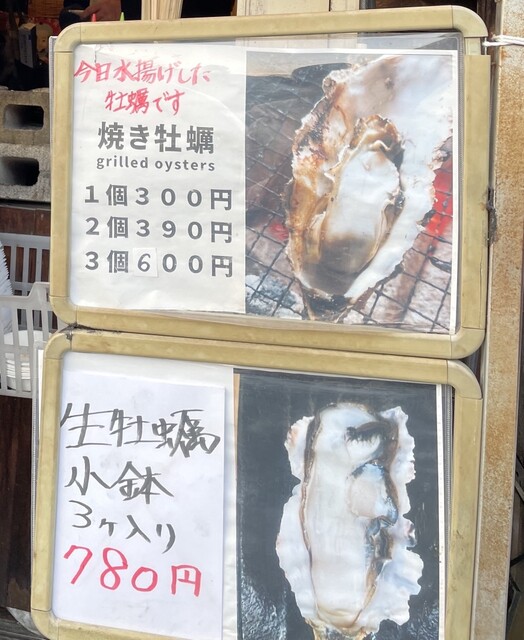 今日水揚げした
牡蠣です
焼き牡蠣
grilled oysters
1個300円
2個390円
3個600円
生牡蠣
小鉢
3ヶ入り
780円